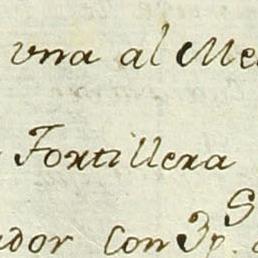 vna al Me
Tortillera
ador Con 3p.s